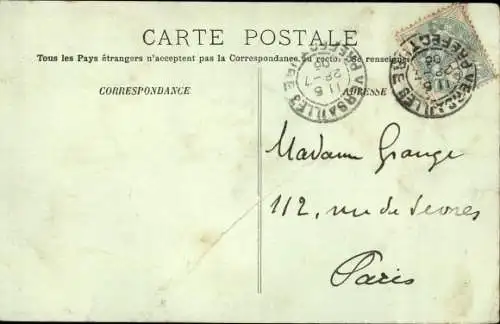 CARTE POSTALE
Tous les Pays étrangers n'acceptent pas la Correspondance au recto. Se renseigner
CORRESPONDANCE
ADRESSE
VERSAILLES
PREFECTURE
11 5
28-7
06
VERSAILLES
PREFECTURE
Madame Grange
112, rue de Sevres
Paris